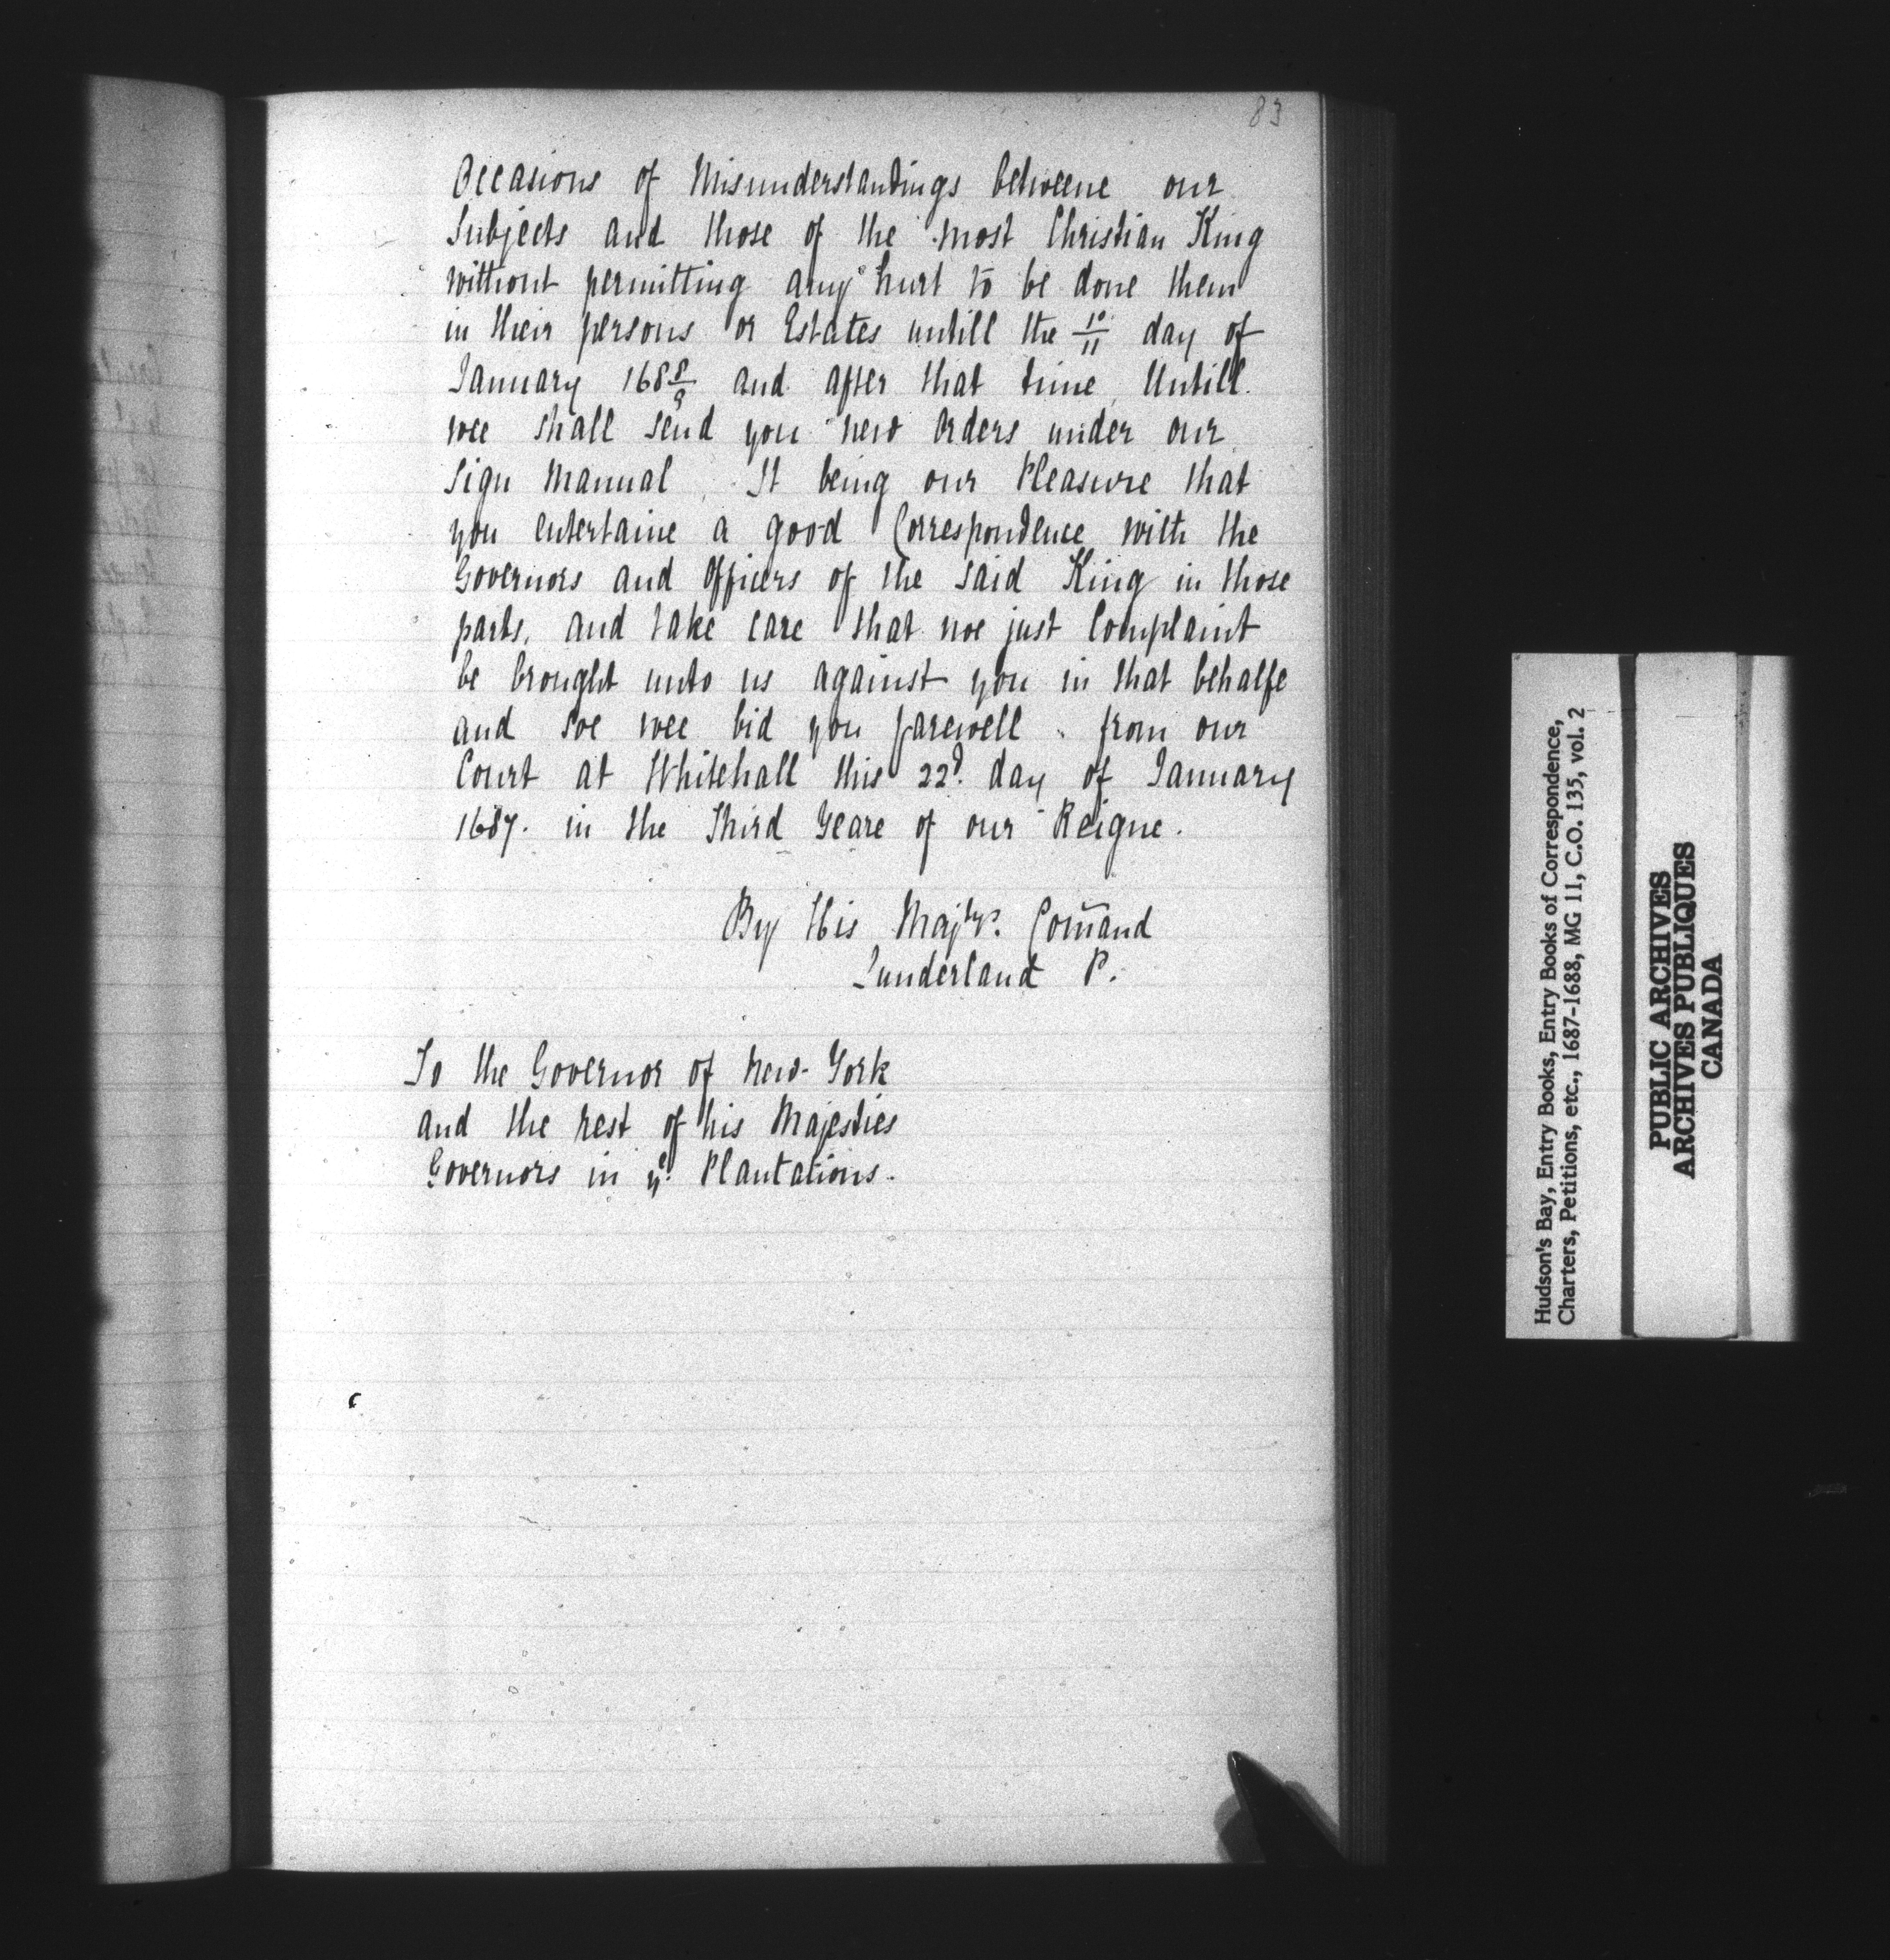 83
Occasions of Misunderstandings betweene our
Subjects and those of the most Christian King
without permitting any hurt to be done them
in their persons or Estates untill the 10/11 day of
January 168 8/9 and after that time, Untill
wee shall send you new Orders under our
Sign Manual, It being our Pleasure that
you entertaine a good Correspondence with the
Governors and Officers of the said King in those
parts, and take care that noe just Complaint
be brought unto us against you in that behalfe
and soe wee bid you farewell. from our
Court at Whitehall this 22d. day of January
1687. in the Third Yeare of our Reigne.
By His Majtys. Com̄and
Sunderland P.
To the Governor of New-York
and the rest of his Majesties
Governors in ye. Plantations.
Hudson's Bay, Entry Books, Entry Books of Correspondence,
Charters, Petitions, etc., 1687-1688, MG 11, C.O. 135, vol. 2
PUBLIC ARCHIVES
ARCHIVES PUBLIQUES
CANADA